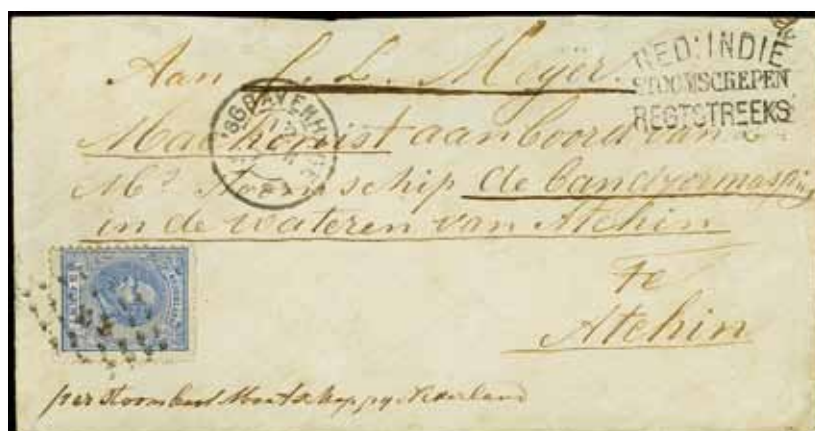 NED: INDIE
STOOMSCHEPEN
REGTSTREEKS
Aan L. L. Meijer.
'SGRAVENHAGE
Machienist aan boord van
Ms Stoomschip de Bandjermassing
in de wateren van Atchin
te
Atchin
per stoomboot Maatschappy Nederland